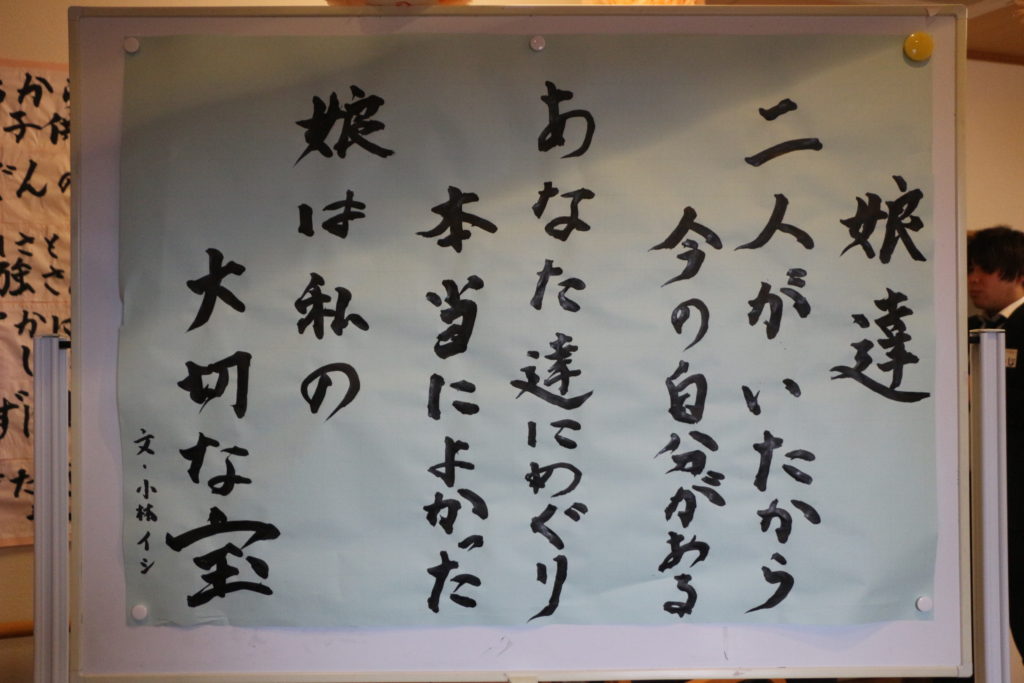 娘達
二人がいたから
今の自分がある
あなた達にめぐり
本当によかった
娘は私の
大切な宝
文・小林イシ